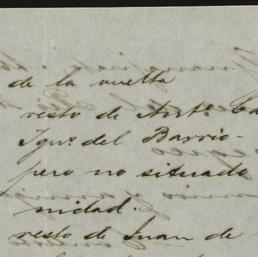 de la vuelta
resto de Ant.º Ca
Ign.º del Barrio -
pero no situado
nidad.
resto de Juan de